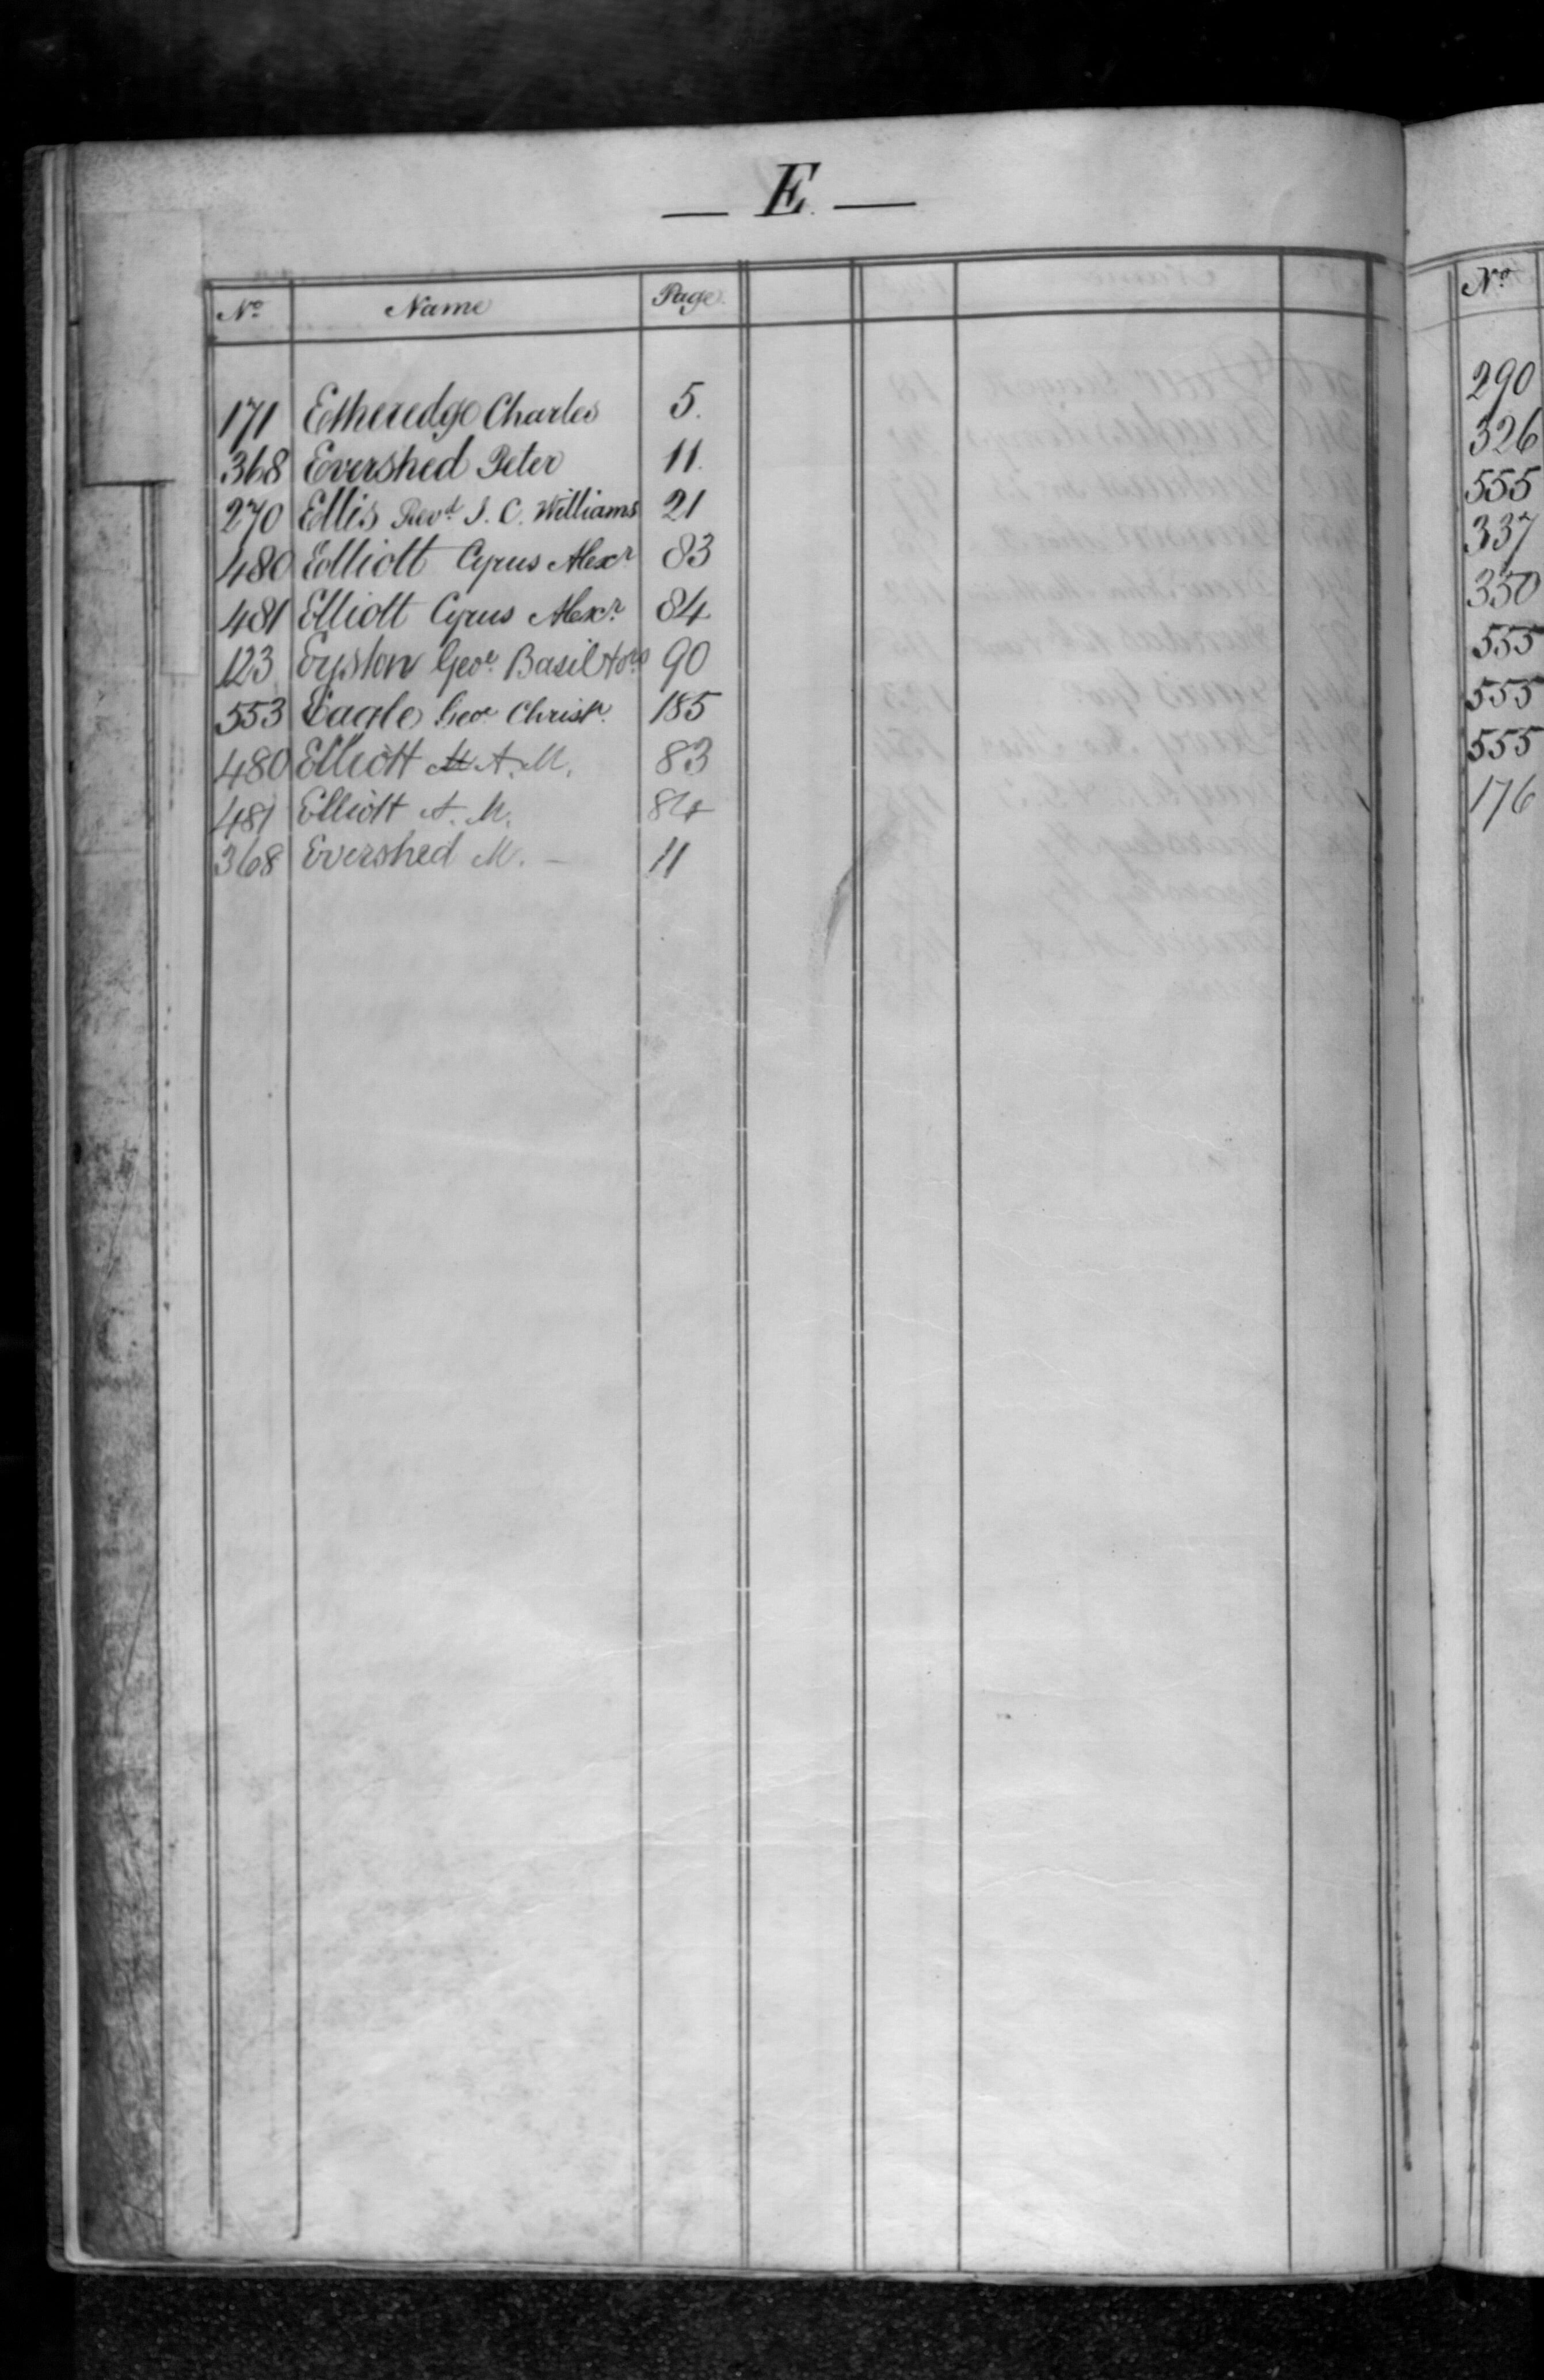 — E. —
No Name Page
171 Etheredge Charles 5.
368 Evershed Peter 11.
270 Ellis Revd J. C. Williams 21
480 Elliott Cyrus Alexr 83
481 Elliott Cyrus Alexr 84
123 Eyston Geoe Basil 90
553 Eagle Geoe Christr 185
480 Elliott A. M. 83
481 Elliott A. M. 84
368 Evershed M. — 11
No
290
326
555
337
350
555
555
555
176